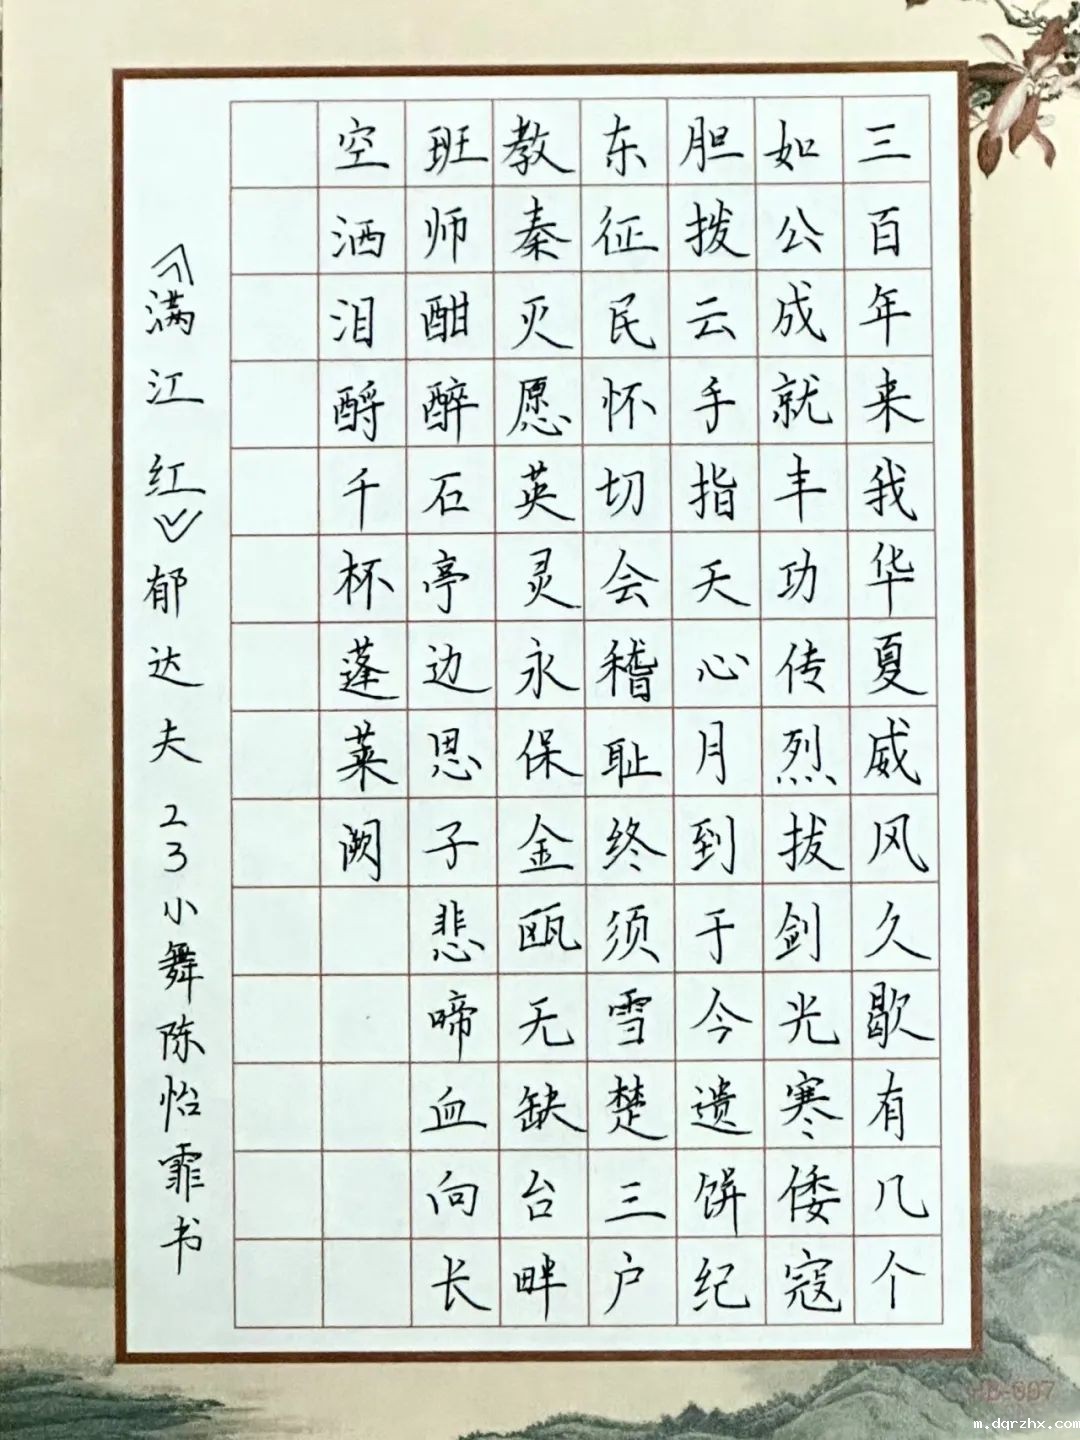 三百年来我华夏威风久歇有几个
如公成就丰功传烈拔剑光寒倭寇
胆拨云手指天心月到于今遗饼纪
东征民怀切会稽耻终须雪楚三户
教秦灭愿英灵永保金瓯无缺台畔
班师酣醉石亭边思子悲啼血向长
空洒泪酹千杯蓬莱阙
《满江红》郁达夫 23小舞陈怡霏书
HB-007
m.dqrzhx.com